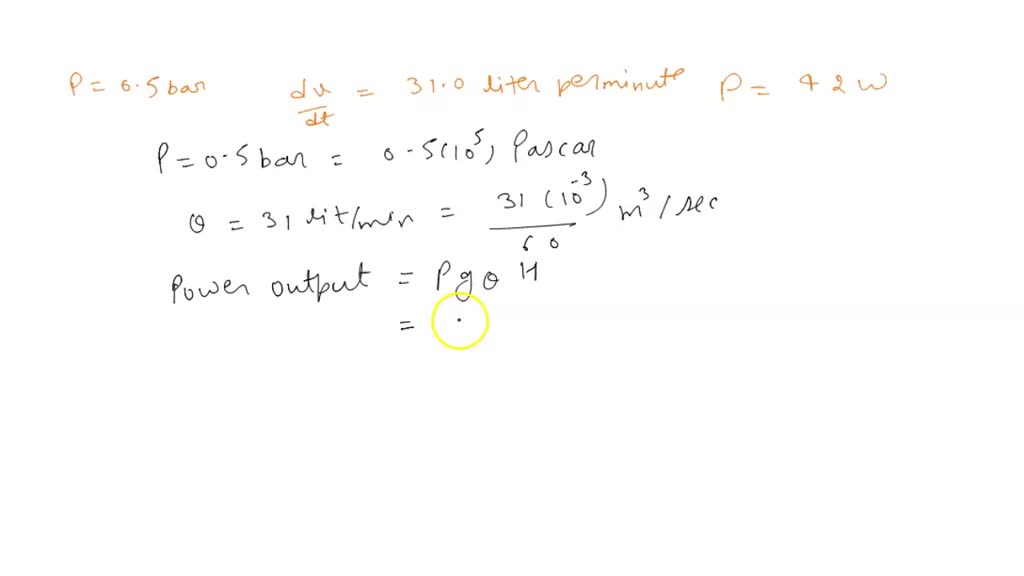 P = 0.5 bar   dv/dt = 31.0 liter perminute   P = 42 w
P = 0.5 bar = 0.5(10^5) Pascar
Q = 31 lit/min = 31(10^-3)/60 m^3/sec
Power output = ρgQH
=